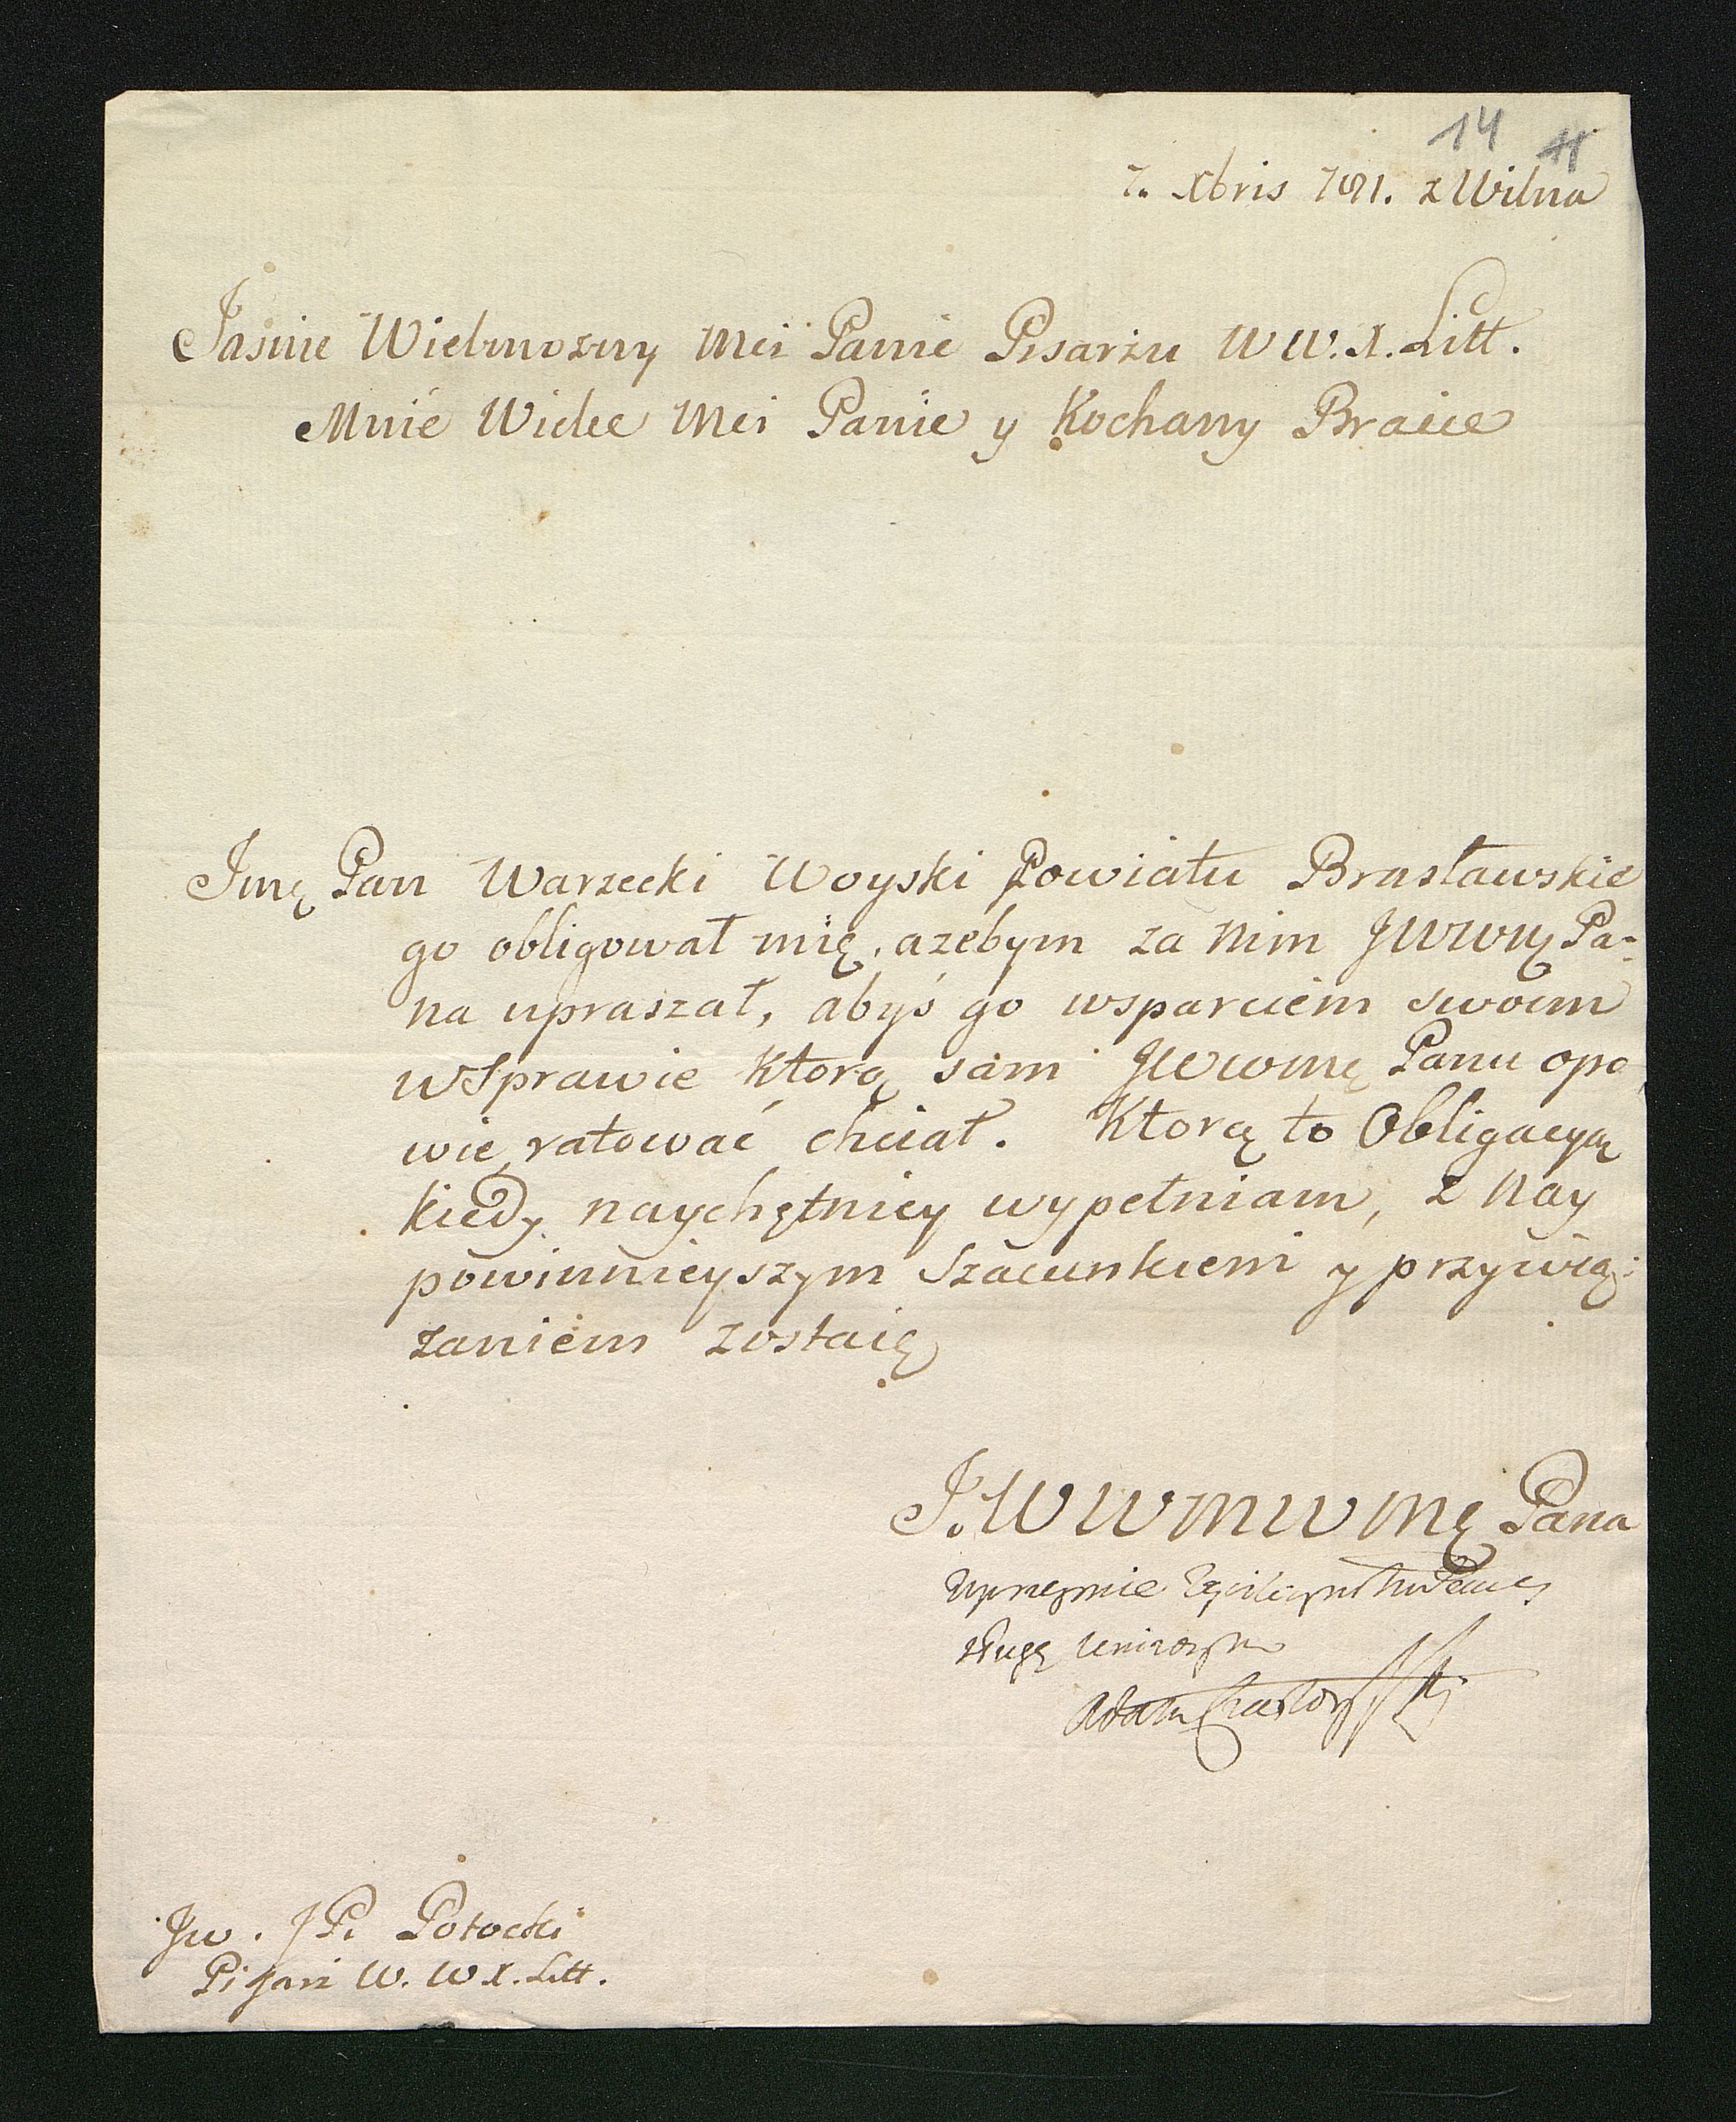 14 11
7. Xbris 781. z Wilna
Jaśnie Wielmozny Mci Panie Pisarzu W W. X. Litt.
Mnie Wielce Mci Panie y Kochany Bracie
Jmę Pan Warzecki Woyski Powiatu Brasławskie
go obligował mię, azebym za nim JWWM Pa-
na upraszał, abyś go wsparciem swoim
w Sprawie ktorą sam JWWMę Panu opo
wie ratować chciał. Ktorą to Obligacyą
kiedy naychętniey wypełniam, z nay
powinnieyszym Szacunkiem y przywią:
zaniem zostaię
J. W W M W Mę Pana
Uprzeymie
sługą
Adam Czartoryski
JW. JP. Potocki
Pisarz W. W X. Litt.